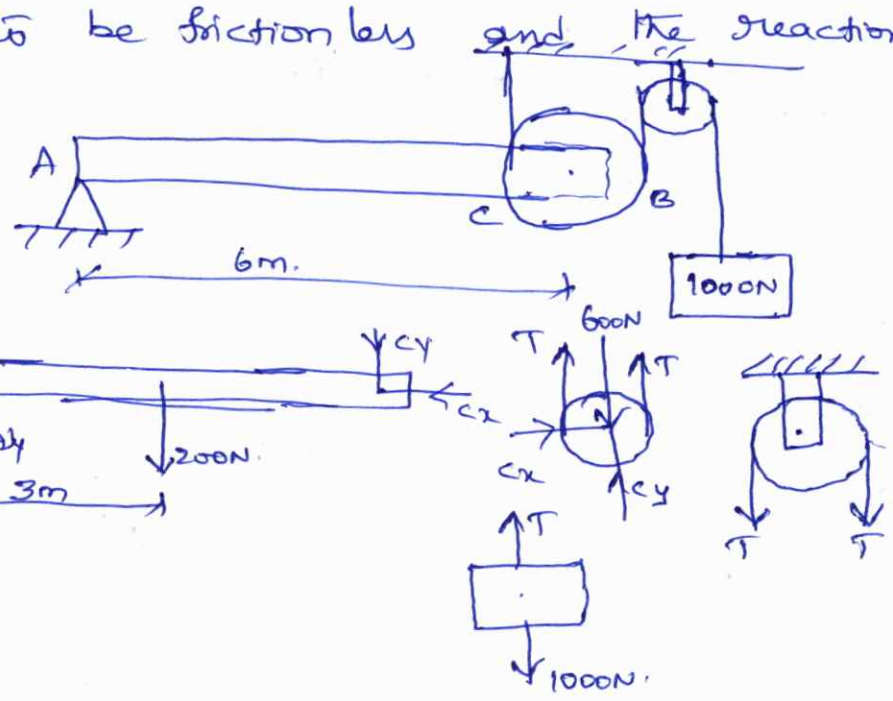 to be frictionless and the reaction
A
C
B
6m.
1000N
Cy
Cx
200N.
3m
T
600N
T
Cx
Cy
T
T
T
1000N.